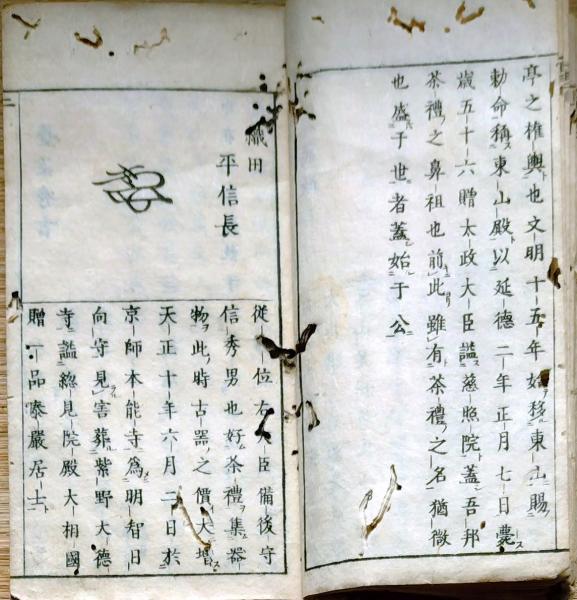 亭之権輿也文明十五年始移東山賜
勅命稱東山殿以延德二年正月七日薨
歳五十六贈太政大臣謚慈照院蓋吾邦
茶禮之鼻祖也前此雖有茶禮之名猶微
也盛于世者蓋始于公
織田
平信長
從一位右大臣備後守
信秀男也好茶禮集器
物此時古器之價大增
天正十年六月二日於
京師本能寺為明智日
向守見害葬紫野大德
寺謚總見院殿大相國
贈一品泰嚴居士